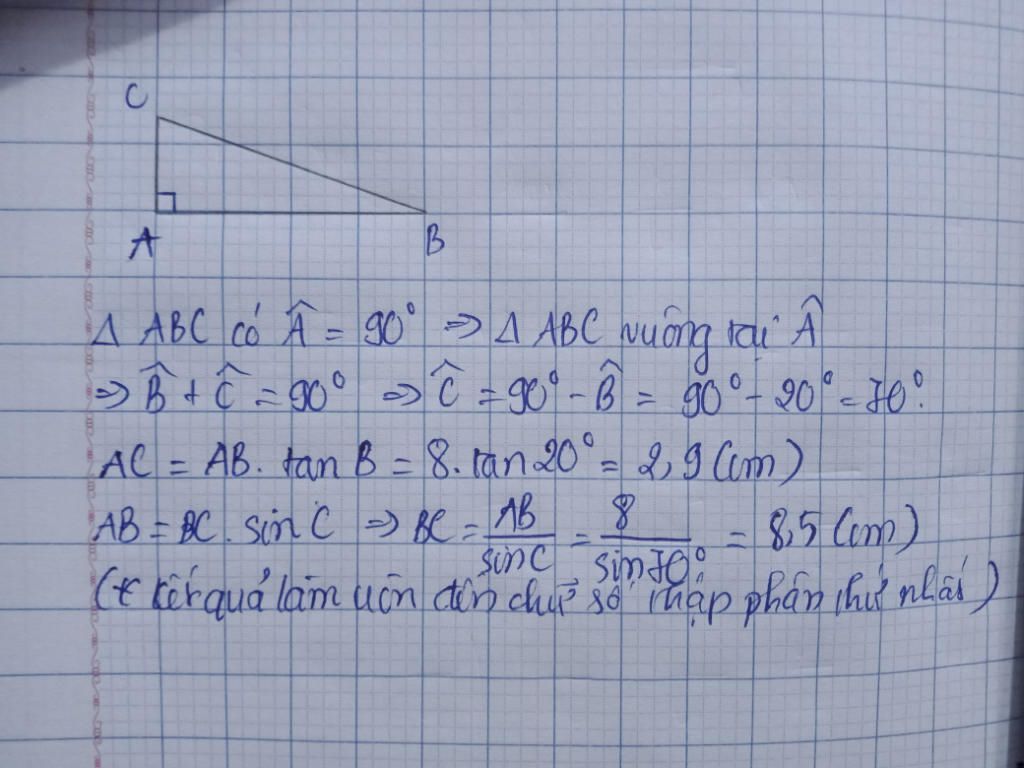 C
A
B
Δ ABC có Â = 90° ⇒ Δ ABC vuông tại Â
⇒ B̂ + Ĉ = 90° ⇒ Ĉ = 90° - B̂ = 90° - 20° = 70°.
AC = AB. tan B = 8. tan 20° = 2,9 (cm)
AB = BC. sin C ⇒ BC = AB/sin C = 8/sin 70° = 8,5 (cm)
( kết quả làm tròn đến chữ số thập phân thứ nhất )